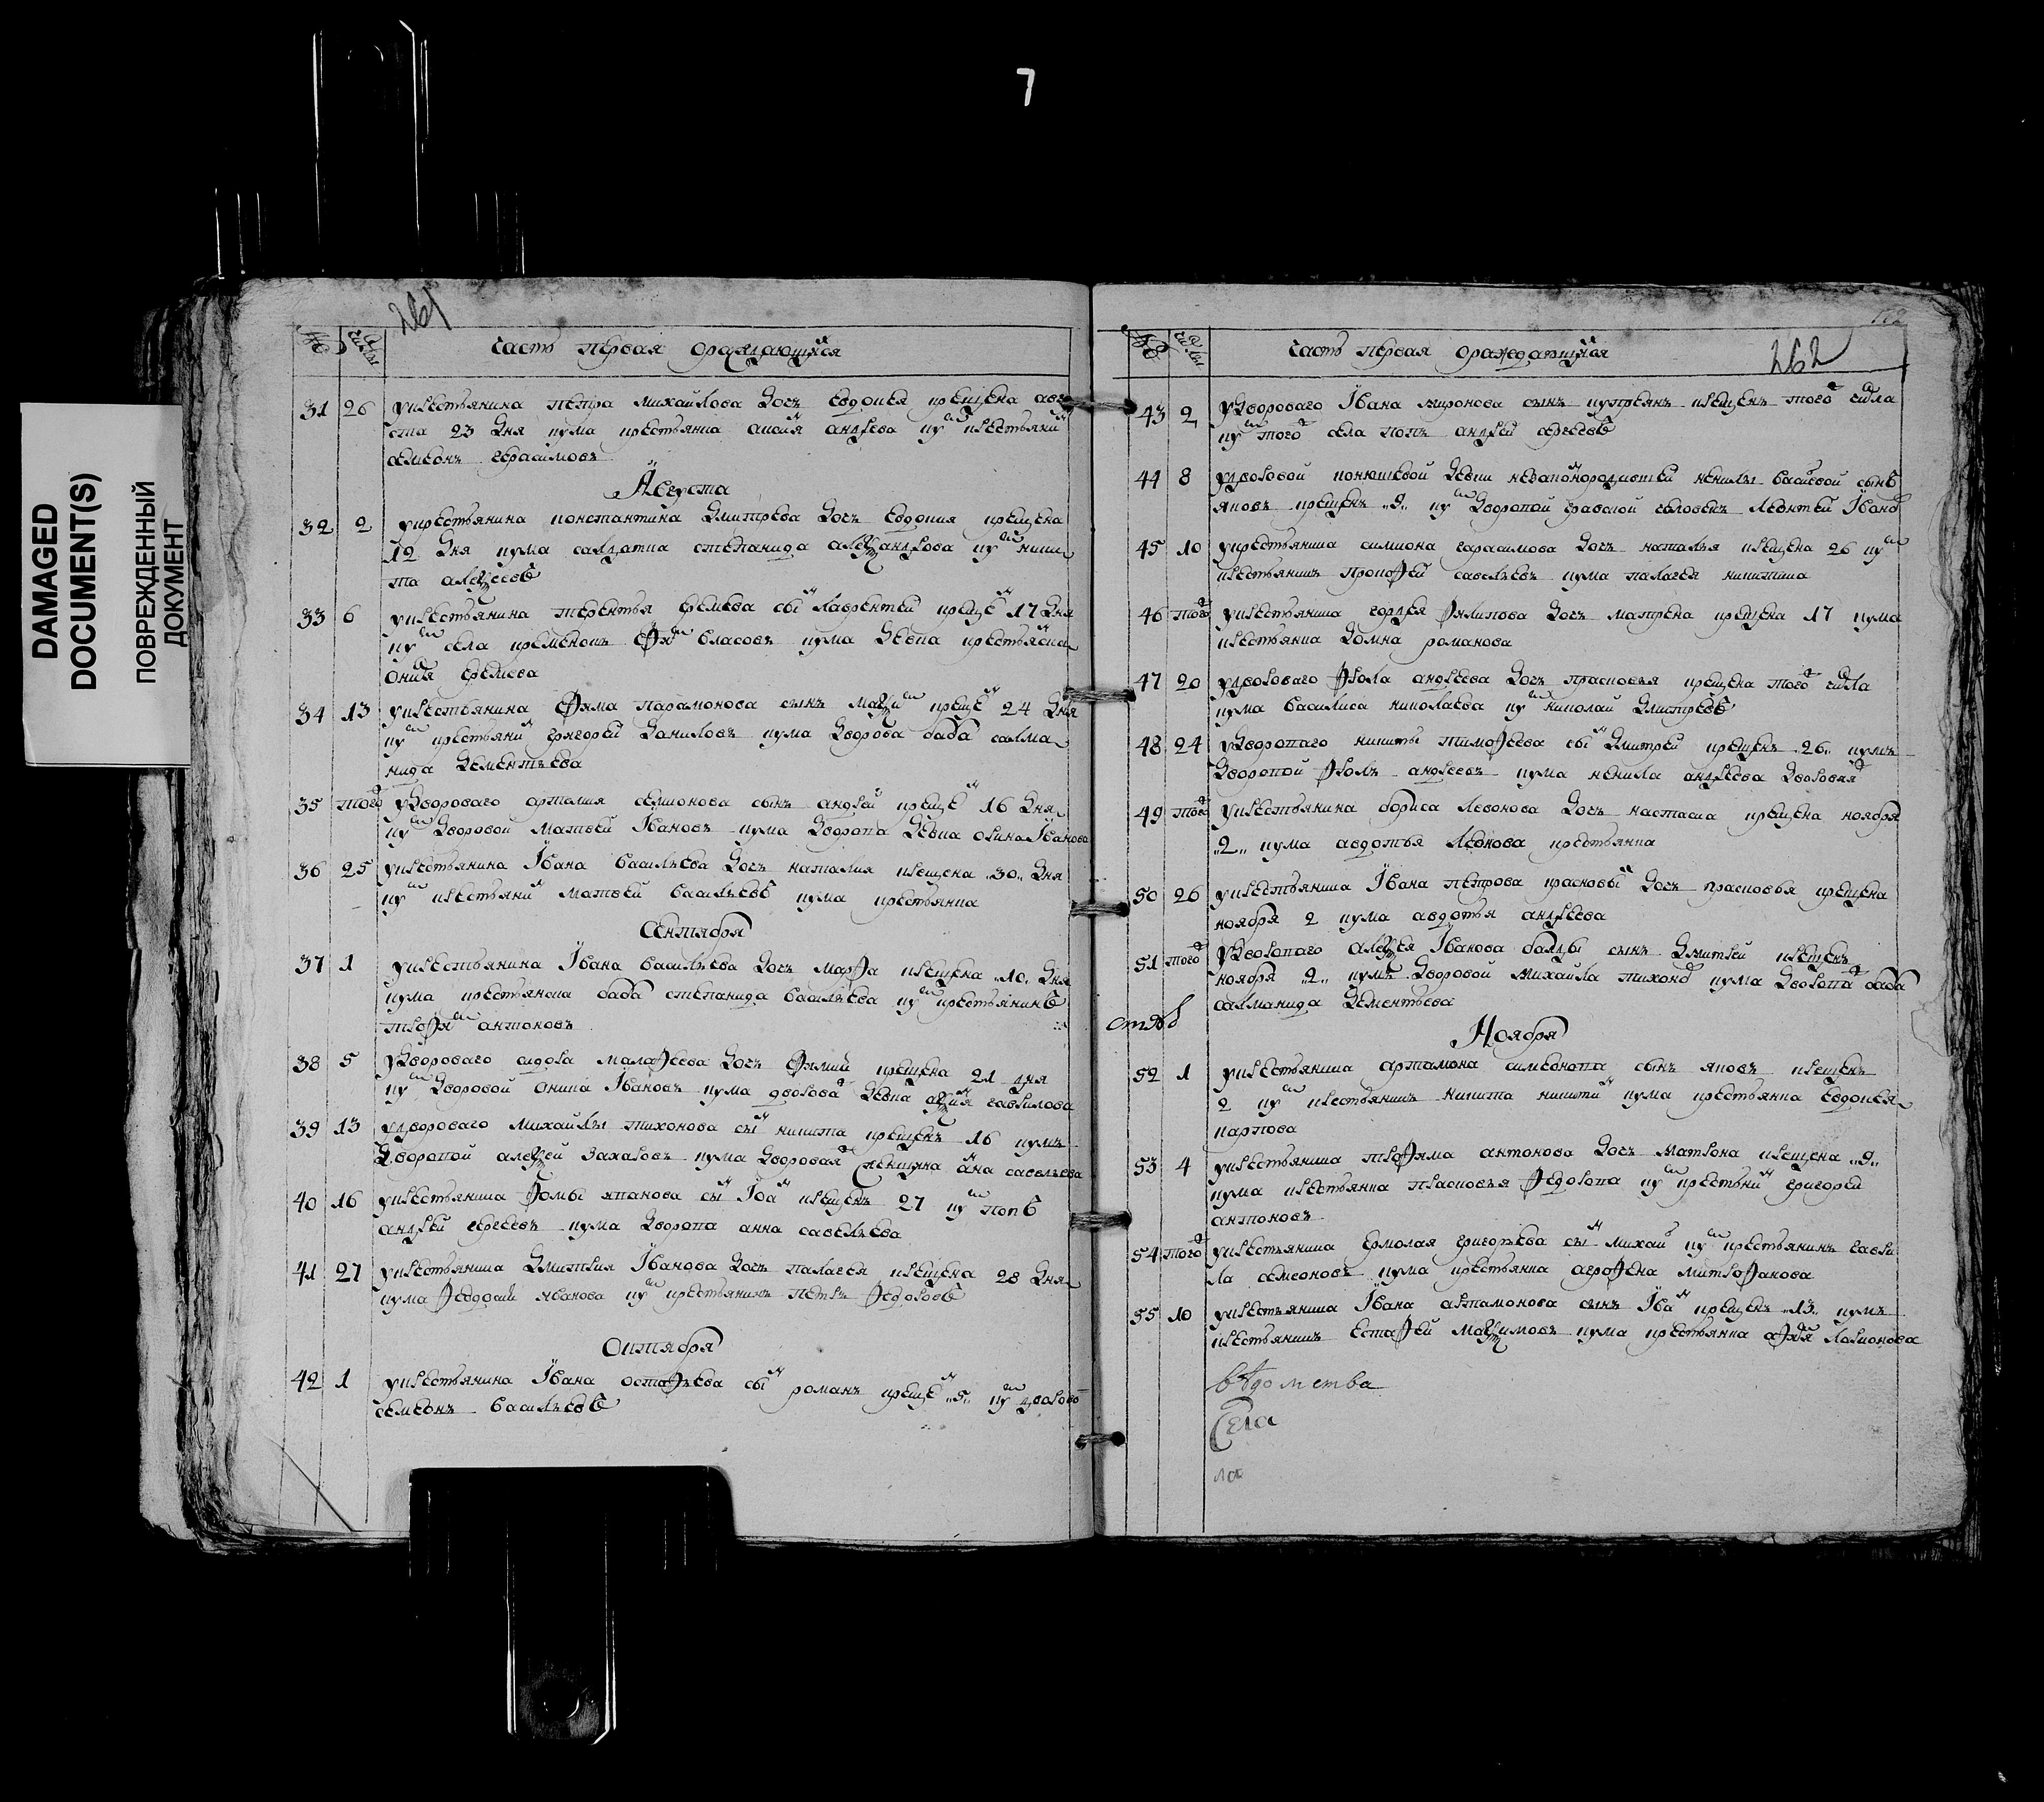 7
DAMAGED
DOCUMENT(S)
ПОВРЕЖДЕННЫЙ
ДОКУМЕНТ
261
часть первая ораждающихся
31 26 укрестьянина петра михайлова дочь евдокея крещена авгу
ста 23 дня кума крестьянка андрева ку крестьяни
семенъ герасимовъ
Августа
32 2 укрестьянина константина дмитрева дочь евдокия крещена
12 дня кума салдатка степанида александрова ку ники
та алексеевъ
33 6 укрестьянина терентья еремева сы лаврентей креще 17 дня
ку села власовъ кума девка
еремеева
34 13 укрестьянина парамонова сынъ макси креще 24 дня
ку крестьяни григорей даниловъ кума дворова баба салма
нида дементьева
35 того удвороваго артемия семионова сынъ андрей креще 16 дня
ку дворовой матвей Iвановъ кума дворова девка Iванова
36 25 укрестьянина Iвана васильева дочь наталия крещена 30 дня
ку крестьяни матвей васильевъ кума крестьянка
Сентября
37 1 укрестьянина Iвана васильева дочь марфа крещена 10 дня
кума крестьянска баба степанида васильева ку крестьянинъ
трофи антоновъ
38 5 удвороваго сидора малафеева дочь крещена 21 дня
ку дворовой Iвановъ кума дворова девка гаврилова
39 13 удвороваго михайлы тихонова сы никита крещенъ 16 кумъ
дворовой алексей захаровъ кума дворовая женщина ана савельева
40 16 укрестьянина фомы сы Iоа крещенъ 27 ку попъ
андрей сергеевъ кума дворова анна савельева
41 27 укрестьянина дмитрия Iванова дочь палагея крещена 28 дня
кума иванова ку крестьянинъ петръ федоровъ
Октября
42 1 укрестьянина Iвана остафьева сы романъ креще 5 ку дворово
семенъ васильевъ
262
часть первая ораждающихся
43 2 удвороваго Iвана миронова сынъ купреянъ крещенъ того числа
ку того села попъ андрей сергеевъ
44 8 удворовой девки ненилы васильевой сынъ
яковъ крещенъ 9 ку дворовой человекъ леонтей Iвано
45 10 укрестьянина симиона гарасимова дочь наталья крещена 26 ку
крестьянинъ прокофей савельевъ кума палагея никитина
46 того укрестьянина гордея филипова дочь матрена крещена 17 кума
крестьянка домна романова
47 20 удвороваго фрола андреева дочь прасковья крещена того числа
кума василиса николаева ку николай дмитревъ
48 24 удвороваго никиты тимофеева сы дмитрей крещенъ 26 кумъ
дворовой фролъ андреевъ кума ненила андреева дворовая
49 того укрестьянина бориса левонова дочь настасиа крещена ноября
2 кума авдотья леонова крестьянка
50 26 укрестьянина Iвана петрова дочь прасковья крещена
ноября 2 кума авдотья андреева
51 того удвороваго алексея Iванова сынъ дмитрей крещенъ
ноября 2 кумъ дворовой михайла тихоно кума дворова баба
салманида дементьева
Ноября
52 1 укрестьянина артамона симонова сынъ яковъ крещенъ
2 ку крестьянинъ никита никити кума крестьянка евдокея
карпова
53 4 укрестьянина трофима антонова дочь матрона крещена 9
кума крестьянка прасковья федорова ку крестьяни григорей
антоновъ
54 того укрестьянина ермолая григорьева сы михай ку крестьянинъ гаври
ла семеоновъ кума крестьянка агрофена митрофанова
55 10 укрестьянина Iвана артамонова сынъ Iва крещенъ 13 кумъ
крестьянинъ естафей максимовъ кума крестьянка ларионова
вѣдомства
Села